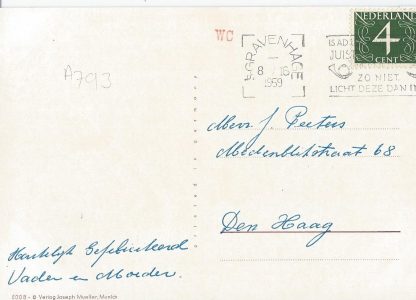 WC
NEDERLAND
4
CENT
'S GRAVENHAGE
8
1959
IS AD
JUIS
ZO NIET,
LICHT DEZE DAN IN
A793
Mevr. J. Peeters
Medemblikstraat 68
Den Haag
Hartelijk Gefeliciteerd
Vader en Moeder.
6008 - © Verlag Joseph Mueller, Munich